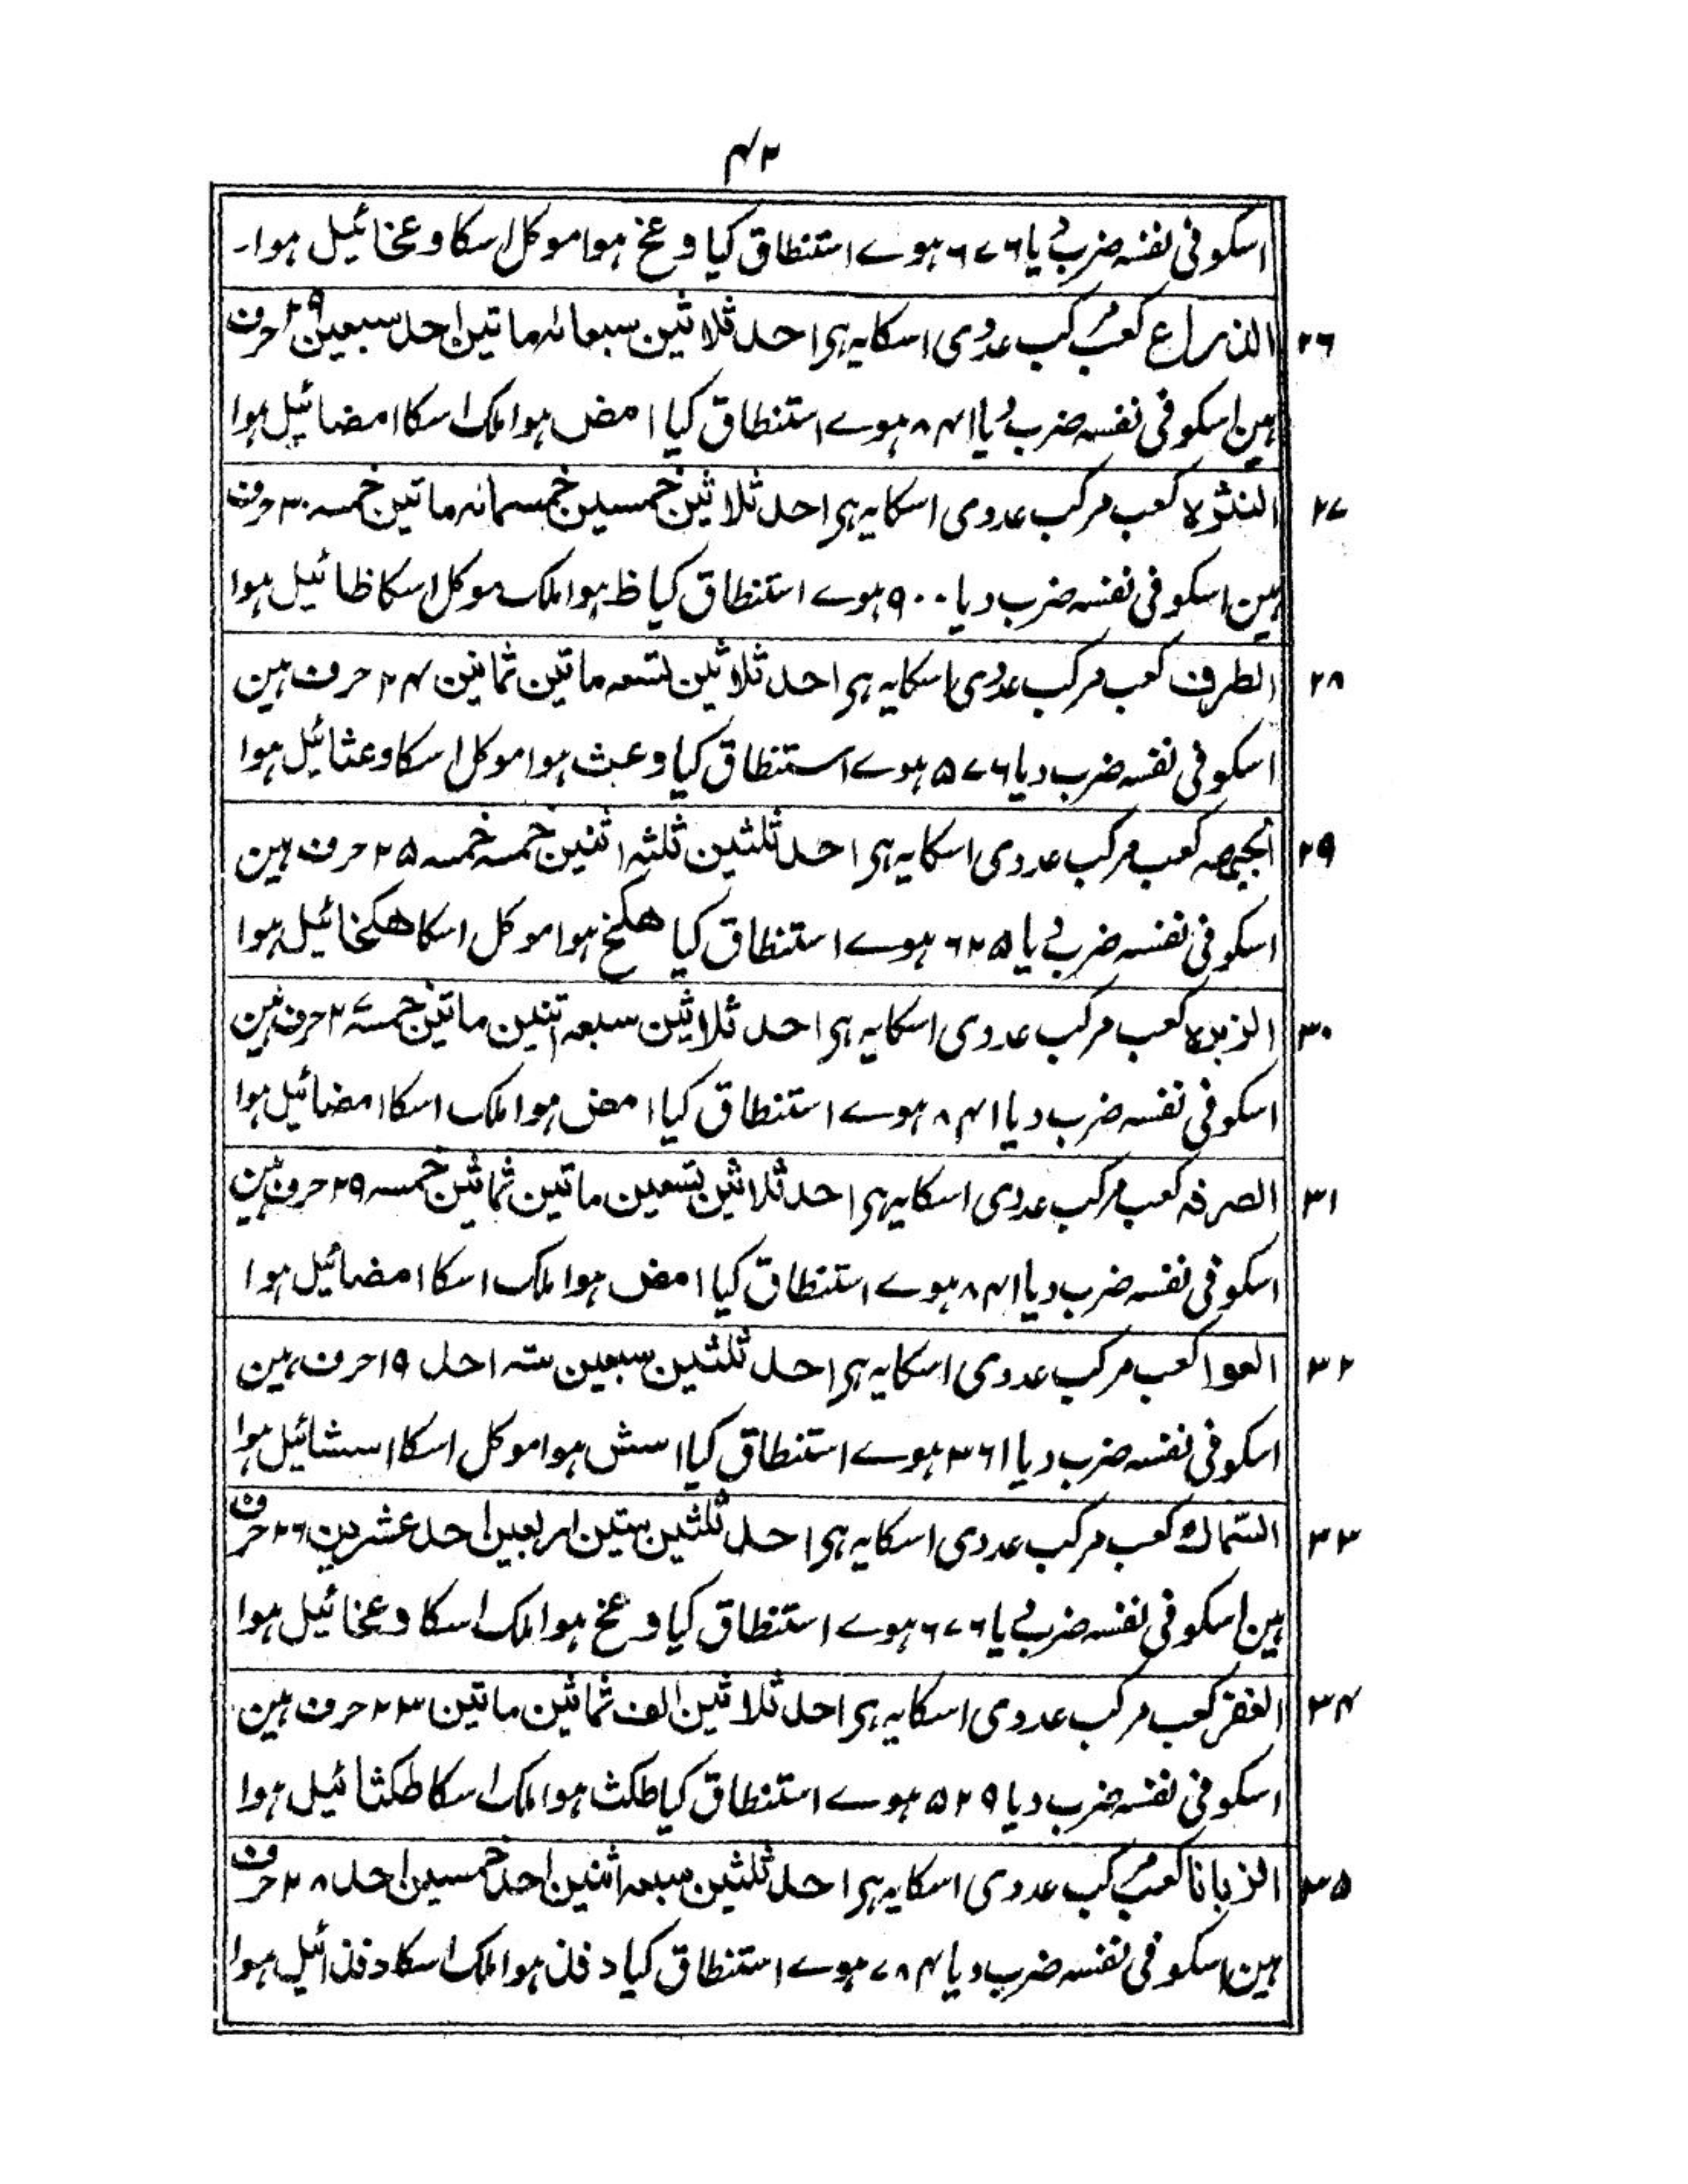 ۴۲
اسکو فی نفسہ ضرب دیا ۶۷۶ ہوے استنطاق کیا وعخ ہوا موکل اسکا وعخائیل ہوا۔
۲۶ الذراع کعب مرکب عددی اسکا یہ ہی احد ثلاثین سبعمائہ ماتین احد سبعین ۲۹ حرف
ہین اسکو فی نفسہ ضرب دیا ۸۴۱ ہوے استنطاق کیا امض ہوا ملک اسکا امضائیل ہوا
۲۷ النثرہ کعب مرکب عددی اسکا یہ ہی احد ثلاثین خمسین خمسمائہ ماتین خمسہ ۳۰ حرف
ہین اسکو فی نفسہ ضرب دیا ۹۰۰ ہوے استنطاق کیا ظ ہوا ملک موکل اسکا ظائیل ہوا
۲۸ الطرف کعب مرکب عددی اسکا یہ ہی احد ثلاثین تسعہ ماتین ثمانین ۲۴ حرف ہین
اسکو فی نفسہ ضرب دیا ۵۷۶ ہوے استنطاق کیا وعث ہوا موکل اسکا وعثائیل ہوا
۲۹ الجبھہ کعب مرکب عددی اسکا یہ ہی احد ثلثین ثلثہ اثنین خمسہ خمسہ ۲۵ حرف ہین
اسکو فی نفسہ ضرب دیا ۶۲۵ ہوے استنطاق کیا ھکخ ہوا موکل اسکا ھکخائیل ہوا
۳۰ الزبرہ کعب مرکب عددی اسکا یہ ہی احد ثلاثین سبعہ اثنین ماتین خمسہ ۲۷ حرف ہین
اسکو فی نفسہ ضرب دیا ۸۴۱ ہوے استنطاق کیا امض ہوا ملک اسکا امضائیل ہوا
۳۱ الصرفہ کعب مرکب عددی اسکا یہ ہی احد ثلاثین تسعین ماتین ثمانین خمسہ ۲۹ حرف ہین
اسکو فی نفسہ ضرب دیا ۸۴۱ ہوے استنطاق کیا امض ہوا ملک اسکا امضائیل ہوا
۳۲ العوا کعب مرکب عددی اسکا یہ ہی احد ثلثین سبعین ستہ احد ۱۹ حرف ہین
اسکو فی نفسہ ضرب دیا ۳۶۱ ہوے استنطاق کیا اسش ہوا موکل اسکا اسشائیل ہوا
۳۳ السماک کعب مرکب عددی اسکا یہ ہی احد ثلثین ستین اربعین احد عشرین ۲۶ حرف
ہین اسکو فی نفسہ ضرب دیا ۶۷۶ ہوے استنطاق کیا وعخ ہوا ملک اسکا وعخائیل ہوا
۳۴ الغفر کعب مرکب عددی اسکا یہ ہی احد ثلاثین الف ثمانین ماتین ۲۳ حرف ہین
اسکو فی نفسہ ضرب دیا ۵۲۹ ہوے استنطاق کیا طکث ہوا ملک اسکا طکثائیل ہوا
۳۵ الزبانا کعب مرکب عددی اسکا یہ ہی احد ثلثین سبعہ اثنین احد خمسین احد ۲۸ حرف
ہین اسکو فی نفسہ ضرب دیا ۷۸۴ ہوے استنطاق کیا دفذ ہوا ملک اسکا دفذائیل ہوا